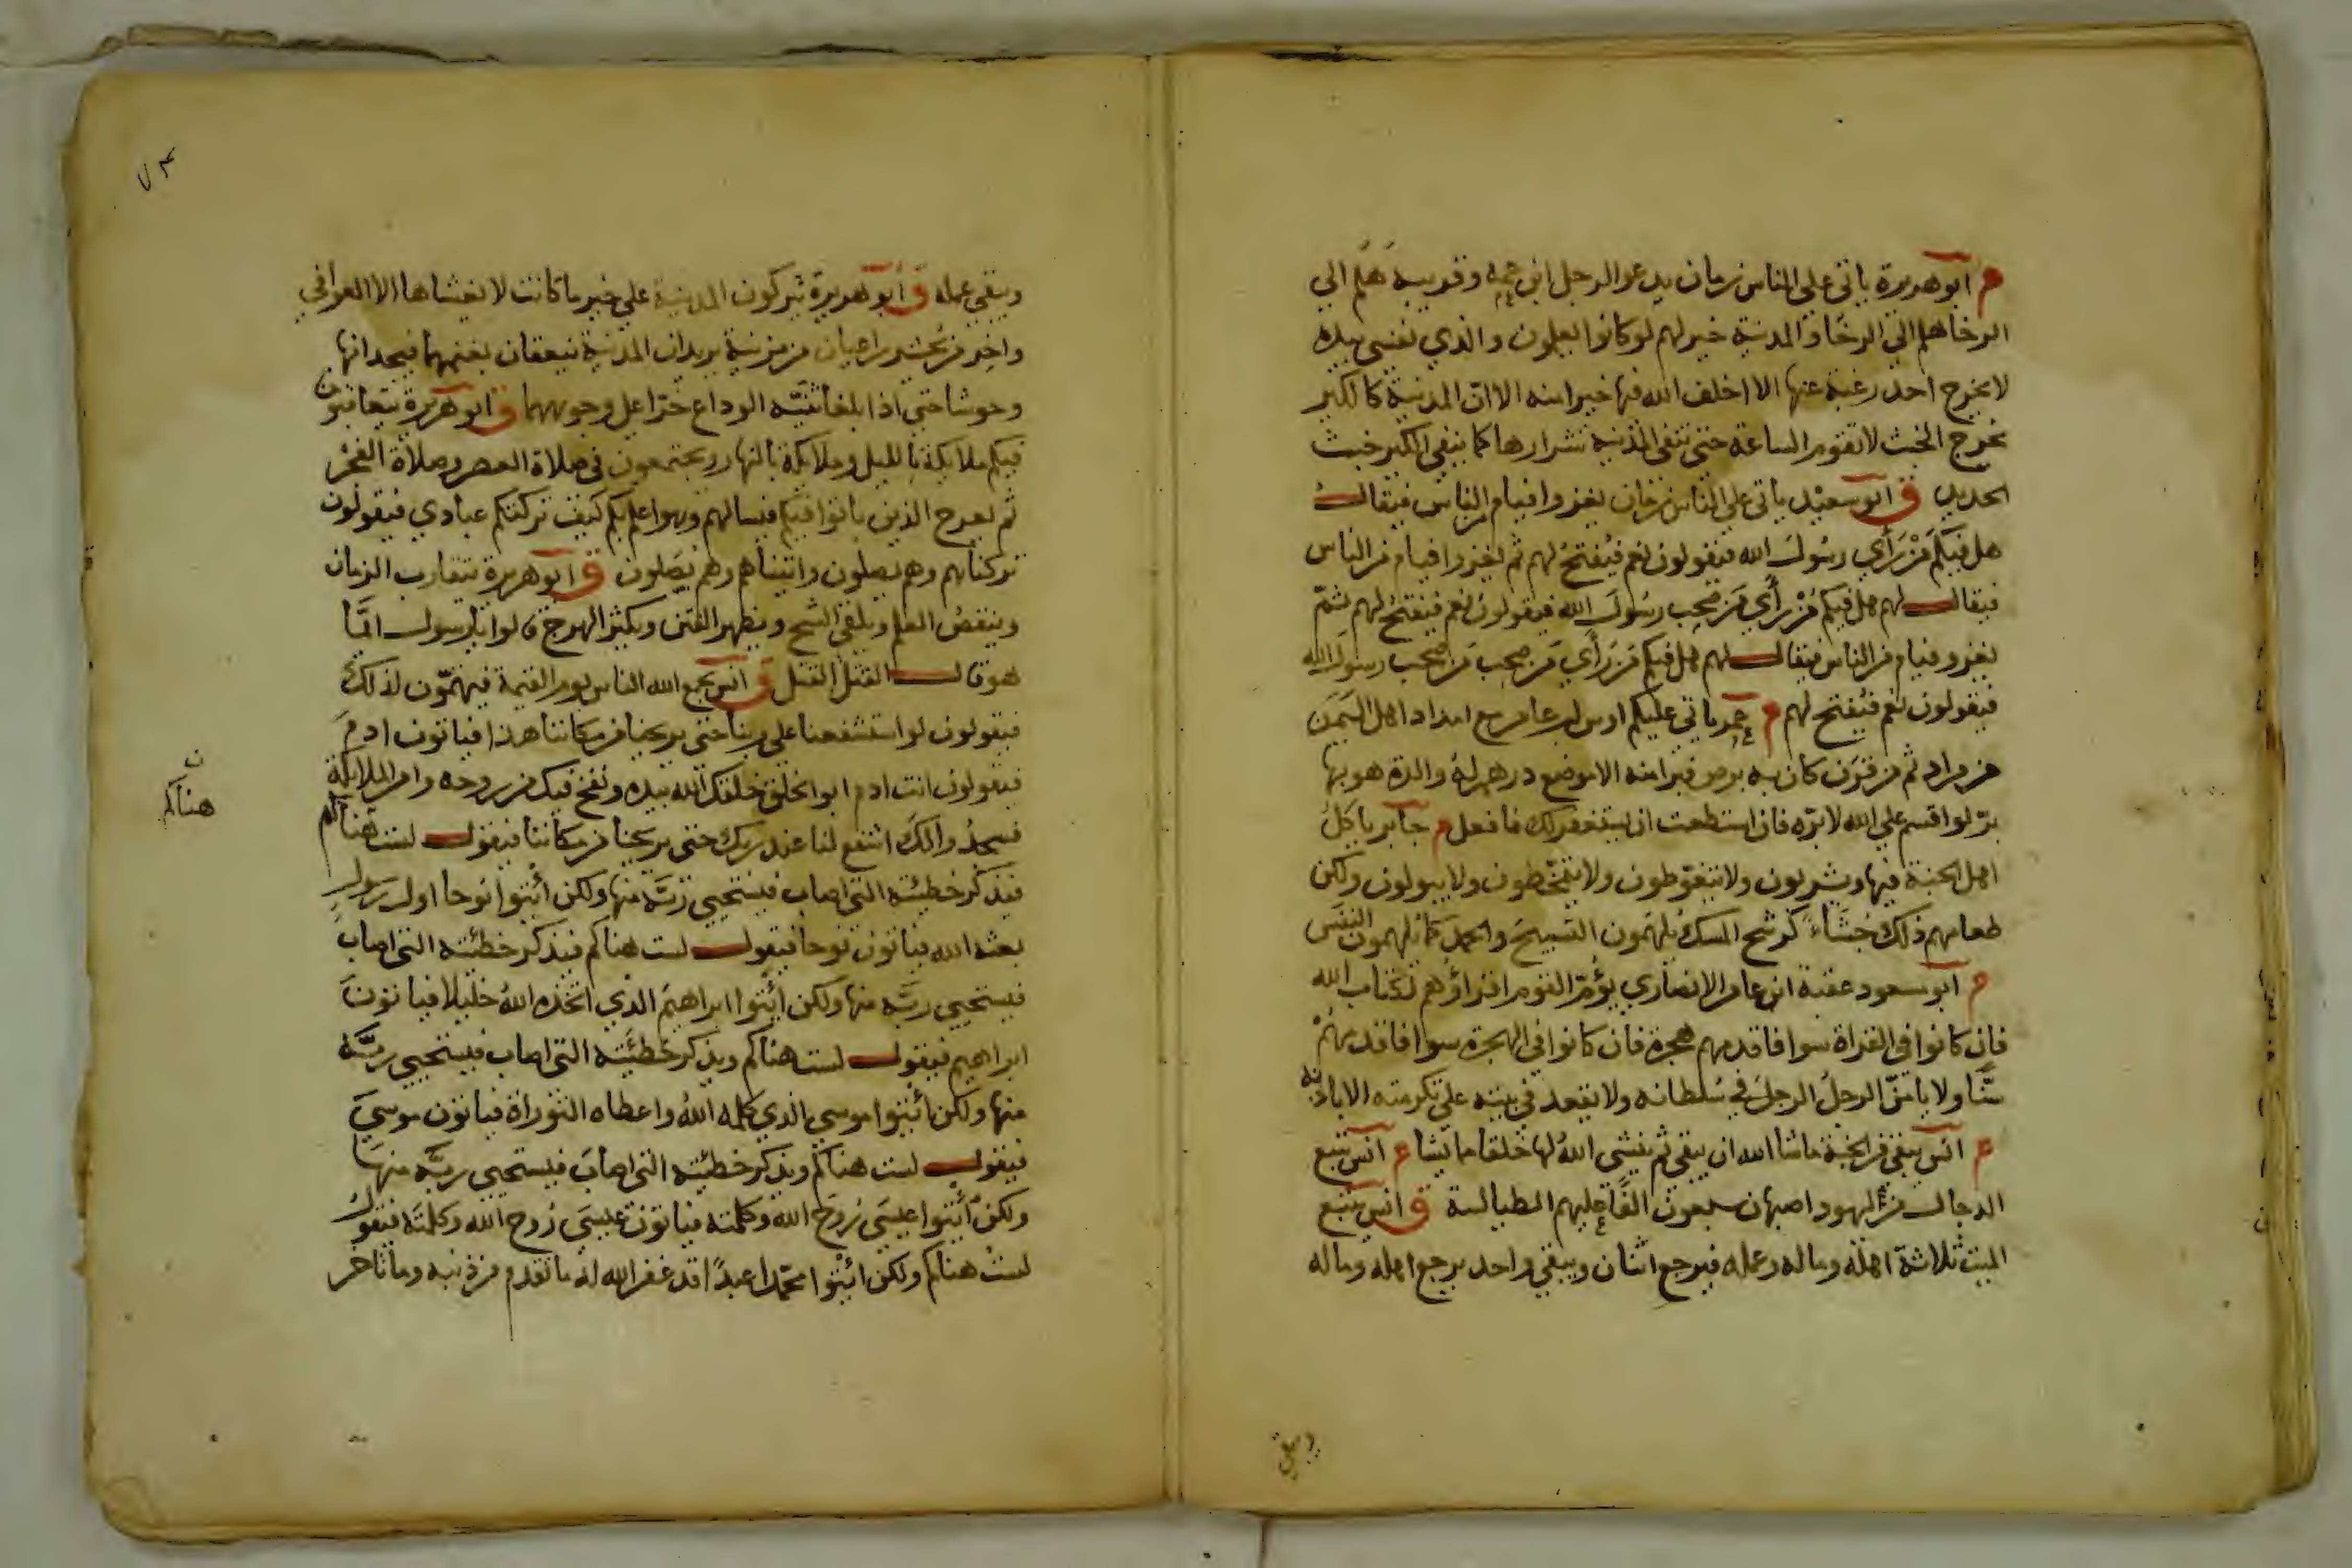 م ابو هريرة ياتى على الناس زمان يدعو الرجل ابن عمه وقريبه هَلُمّ الي
الرخا هلم الي الرخا والمدينة خير لهم لو كانوا يعلمون والذي نفسي بيده
لا يخرج احد رغبة عنها الا اخلف الله فيها خيرا منه الا ان المدينة كالكير
تخرج الخبث لا تقوم الساعة حتى تنفي المدينة شرارها كما ينفي الكير خبث
الحديد ق ابو سعيد ياتى على الناس زمان يغزوا فيام من الناس فيقال
هل فيكم من رَأي رسُولَ الله فيقولون نعم فيُفتح لهم ثم يغزوا فيام من الناس
فيقال لهم هل فيكم من رأي من صحب رسُولَ الله فيقولون نعم فيفتح لهم ثم
يغزو فيام من الناس فيقال لهم هل فيكم من رَأي من صحب من صحب رسُولَ الله
فيقولون نعم فيُفتح لهم م عمر ياتي عليكم اويس بن عامر مع امداد اهل اليَمَن
من مراد ثم من قرَن كان به برص فبرا منه الا موضع درهم له والدة هو بها
برّ لو اقسم على الله لابرّه فان استطعت ان يستغفر لك فافعل م جابر ياكل
اهل الجنة فيها ويشربون ولا يتغوّطون ولا يتمخّطون ولا يبولون ولكن
طعامهم ذلك جُشَاء كرشح المسك يُلهَمون التسبيحَ والحمد كما يُلهمون النفَس
م ابو مسعود عقبة ابن عامر الانصاري يؤُمّ القوم اقراؤُهم لكتاب الله
فان كانوا في القراة سوا فاقدمهم هجرة فان كانوا في الهجرة سوا فاقدمهُمْ
سنًّا ولا يامنّ الرجلُ الرجلَ في سُلطانه ولا يقعد في بيته على تكرمته الا باذنه
م انس يبقي من الجنة ما شا الله ان يبقي ثم ينشي اللهُ لها خلقا مما يشا م انس يتبع
الدجال من يهود اصبهان سبعون الفًا عليهم الطيالسة ق انس يتبع
الميت ثلاثة اهله وماله وعمله فيرجع اثنان ويبقي واحد يرجع اهله وماله
ويبقي
٧٣
ويبقي عمله ق ابو هريرة يتركون المدينة على خير ما كانت لا يغشاها الا العوافي
واخر من يُحشر راعيان من مزينة يريدان المدينة ينعقان بغنمهما فيجدانها
وحوشا حتي اذا بلغا ثنيّة الوداع خرّا على وجوههما ق ابو هريرة يتعاقبون
فيكم ملايكة بالليل وملايكة بالنهار ويجتمعون في صلاة العصر وصلاة الفجْر
ثم يعرج الذين باتوا فيكم فيسالهم وهو اعلم بكم كيف تركتم عبادي فيقولون
تركناهم وهم يصلون واتيناهم وهم يُصَلون ق ابو هريرة يتقارب الزمان
وينقصُ العلم ويلقي الشح ويظهر الفتن ويكثر الهرج قالوا يا رسول ايمَّا
هو قال القتل القتل ق انس يجمع الله الناس يوم القيمة فيهتمّون لذلك
فيقولون لو استشفعنا علي ربنا حتي يريحنا من مكاننا هذا فياتون ادمَ
فيقولون انت ادم ابو الخلق خلقك الله بيده ونفخ فيك من روحه وامر الملايكة
فسجدُوا لكَ اشفع لنا عند ربك حتى يريحنا من مكاننا فيقول لست هناكم
فيذكر خطيئته التي اصاب فيستحيي ربَّه منها ولكن أئتوا نوحا اول رسول
بعثه الله فياتون نوحا فيقول لست هناكم فيذكر خطئته التى اصابَ
فيستحيي ربَّه منها ولكن ائْتوا ابراهيمَ الذي اتخذه اللهُ خليلا فياتونَ
ابراهيم فيقول لست هناكم ويذكر خَطيئَته التى اصاب فيستحيي ربَّه
منها ولكن ائتوا موسي الذي كلمه اللهُ واعطاه التوراة فياتون موسيَ
فيقول لست هناكم ويذكر خطيئته التى اصابَ فيستحيي ربَّه منهَا
ولكنْ أئتوا عيسَي رُوحَ الله وكلمته فياتون عيسَي رُوح الله وكلمتَه فيقولُ
لستُ هناكم ولكن ائتْوا محمّدا عبدًا قد غفر الله له ما تقدم من ذنبه وما تاخر
ن
هناكم